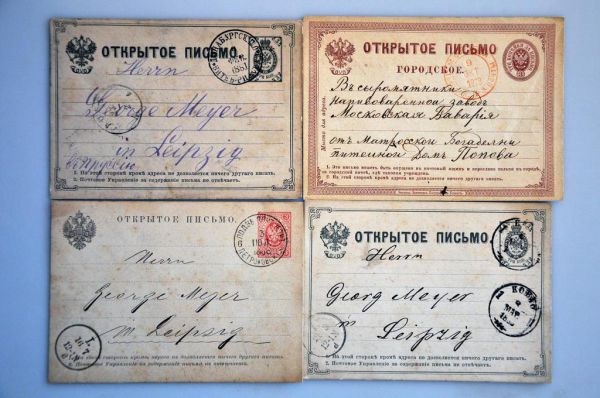 ОТКРЫТОЕ ПИСЬМО
Herrn
George Meyer
in Leipzig
1. На этой сторонѣ кромѣ адреса не дозволяется ничего другаго писать.
2. Почтовое Управленіе за содержаніе письма не отвѣчаетъ.
ОТКРЫТОЕ ПИСЬМО
ГОРОДСКОЕ.
Въ Сыромятники
Пивоваренной заводъ
Московская Баварія
отъ Матросской Богадельни
питейной Домъ Попова
2. Почтовое Управленіе за содержаніе письма не отвѣчаетъ.
ОТКРЫТОЕ ПИСЬМО.
Herrn
George Meyer
in Leipzig
1. На этой сторонѣ кромѣ адреса не дозволяется ничего другаго писать.
2. Почтовое Управленіе за содержаніе письма не отвѣчаетъ.
ОТКРЫТОЕ ПИСЬМО
Herrn
Georg Meyer
in Leipzig
КОВНО
1. На этой сторонѣ кромѣ адреса не дозволяется ничего другаго писать.
2. Почтовое Управленіе за содержаніе письма не отвѣчаетъ.